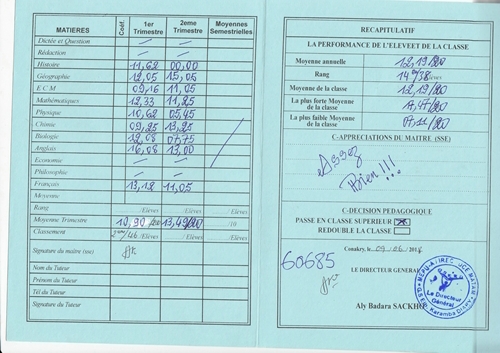 MATIERES Coéf. 1er Trimestre 2eme Trimestre Moyennes Semestrielles
Dictée et Question — —
Rédaction — —
Histoire 11,62 00,00
Géographie 12,05 15,05
E C M 09,16 11,05
Mathématiques 12,33 11,25
Physique 10,62 05,45
Chimie 09,25 13,25
Biologie 12,08 07,75
Anglais 16,08 13,00
Economie — —
Philosophie — —
Français 13,18 11,05
Moyenne
Rang /Elèves /Elèves /Elèves
Moyenne Trimestre 10,90 /20 13,49/20 /10
Classement /46 /Elèves /Elèves /Elèves
Signature du maître (sse)
Nom du Tuteur
Prénom du Tuteur
Tél du Tuteur
Signature du Tuteur
RECAPITULATIF
LA PERFORMANCE DE L'ELEVEET DE LA CLASSE
Moyenne annuelle 12,19/20
Rang 14 /38 élèves
Moyenne de la classe 12,19/20
La plus forte Moyenne de la classe /20
La plus faible Moyenne de la classe 07,11/20
C-APPRECIATIONS DU MAITRE (SSE)
Assez
Bien!!!
C-DECISION PEDAGOGIQUE
PASSE EN CLASSE SUPERIEUR
REDOUBLE LA CLASSE
Conakry, le 09.06.
60685
LE DIRECTEUR GENERAL
Le Directeur
Général
Aly Badara SACKHO